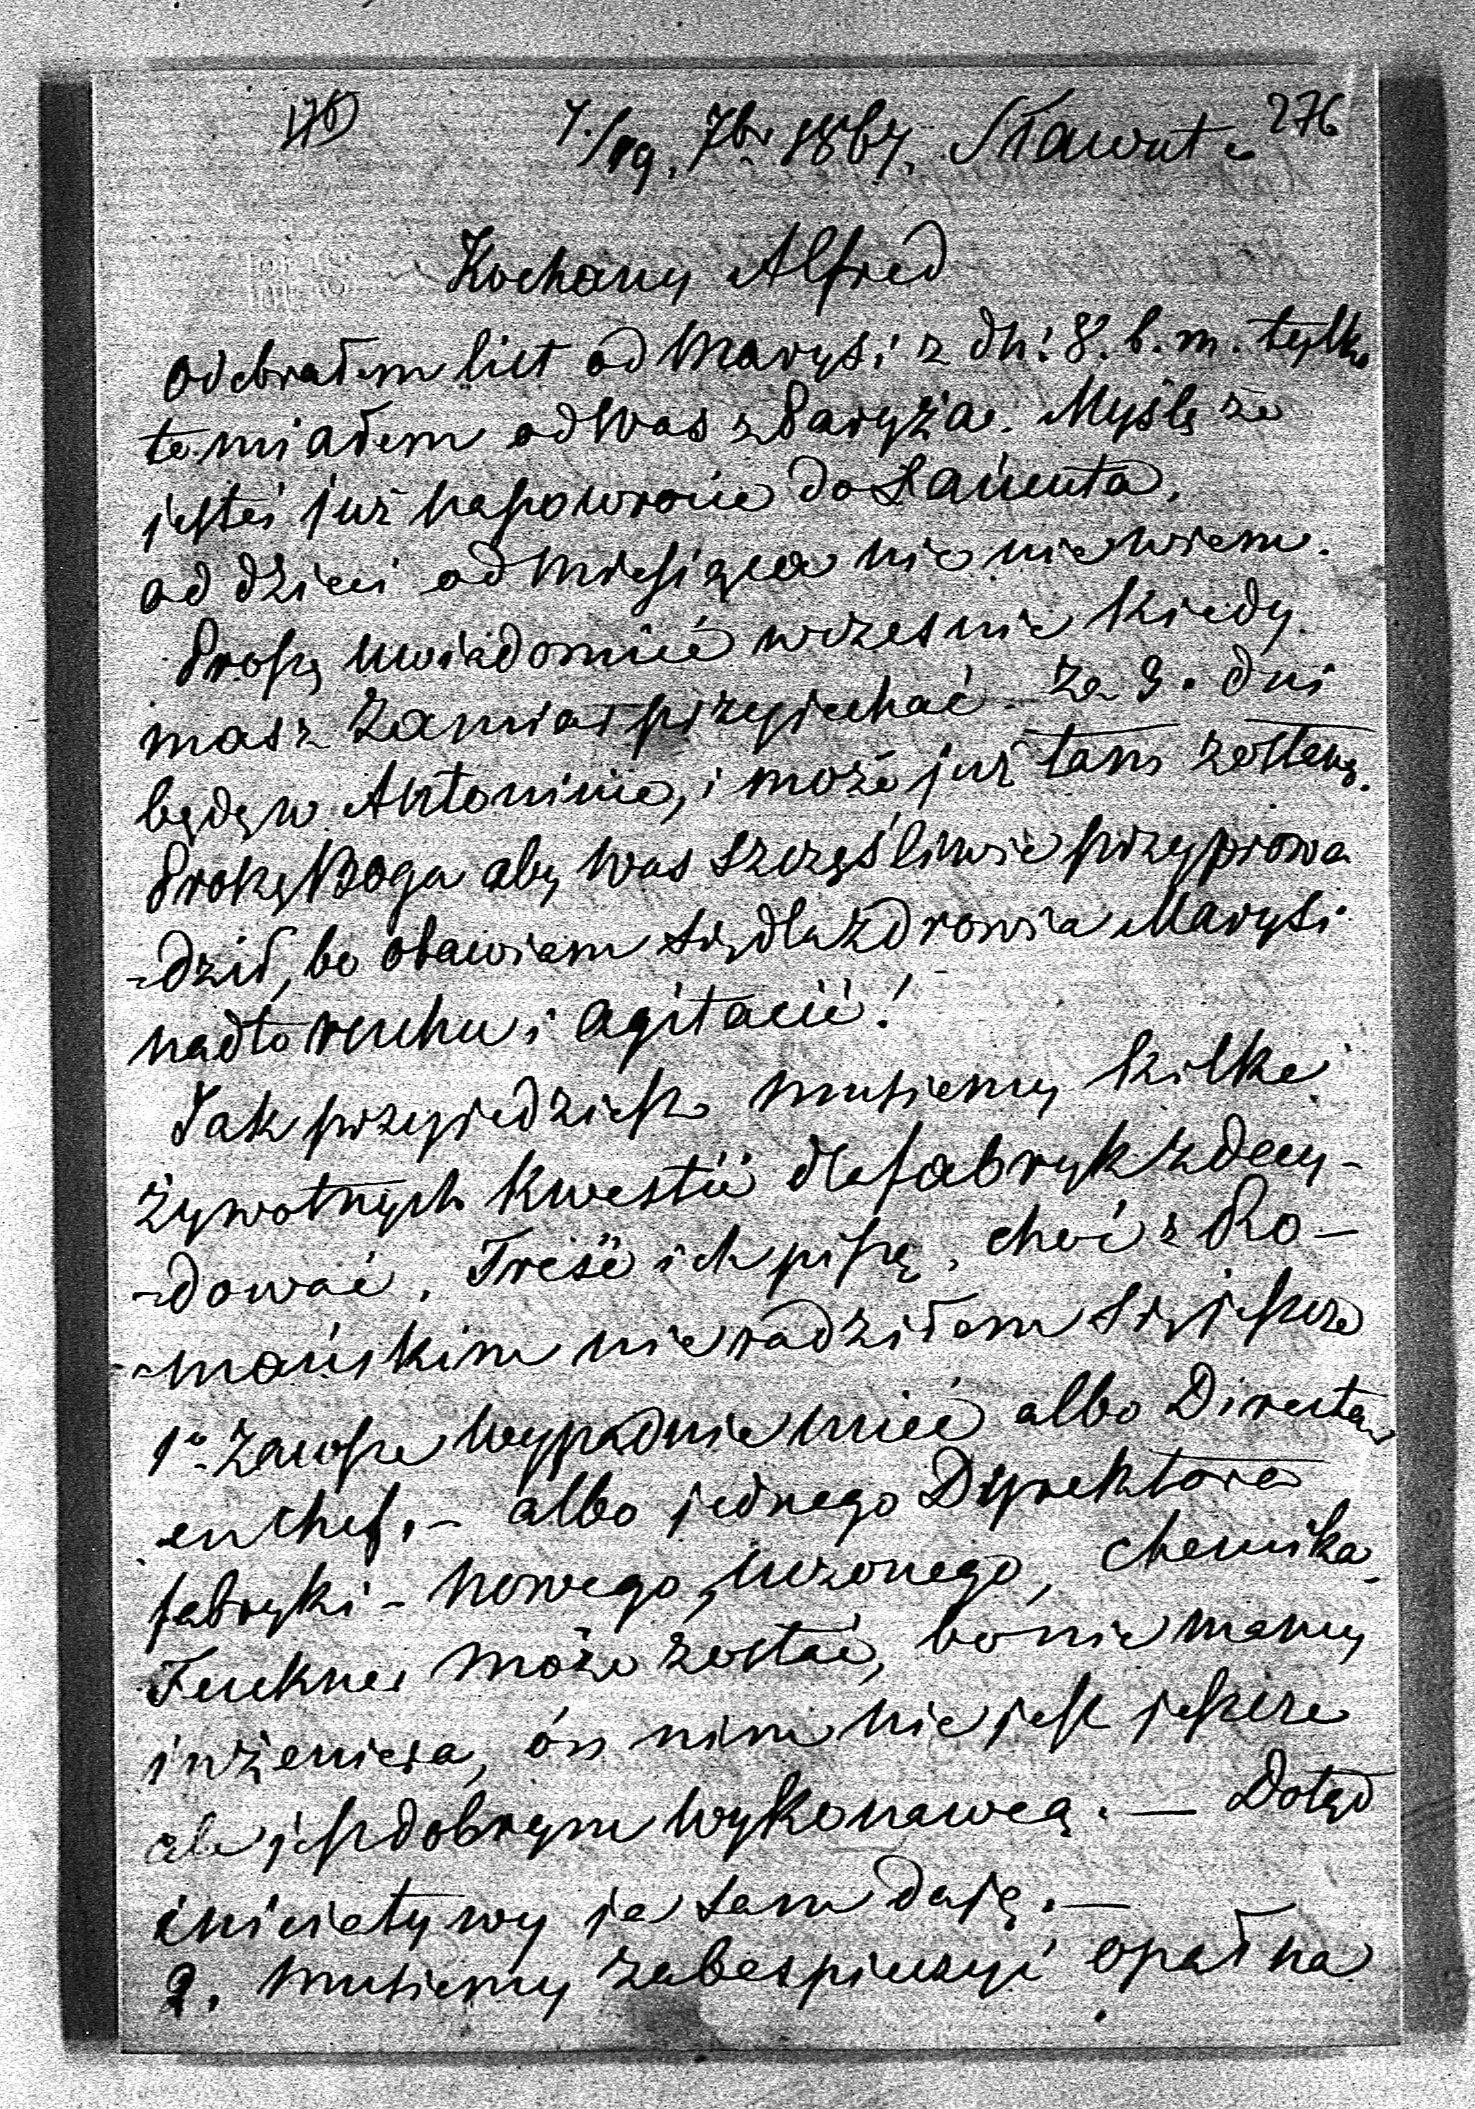 176 7./19. 7br 1867. Sławuta 276
Kochany Alfred
odebrałem list od Marysi z dn: 8. b. m. tylko
te miałem od Was z Paryża. Myślę że
jesteś już napowrocie do Łańcuta.
od dzieci od miesiąca nic nie wiem.
Proszę uwiadomić wcześnie kiedy
masz zamiar przyjechać. Za 9. dni
będę w Antoninie, i może już tam zostanę.
Proszę Boga aby Was szczęśliwie przyprowa
-dził, bo obawiam się dla zdrowia Marysi
nadto ruchu i agitacii!
Jak przyjedziesz musiemy kilka
żywotnych kwestii dla fabryk zdecy-
-dować. Treść ich piszę, choć z Ro-
-mańskim nie radziłem się jeszcze
1o Zawsze wypadnie mieć albo Directeur
en chef. - albo jednego Dyrektora
fabryki - nowego, uczonego, chemika.
może zostać, bo nie mamy
inżeniera, ón nim nie jest jeszcze
ale jest dobrym wykonawcą. — Dotąd
iniciatywy ja sam daję. —
2. Musiemy zabespieczyć opał na